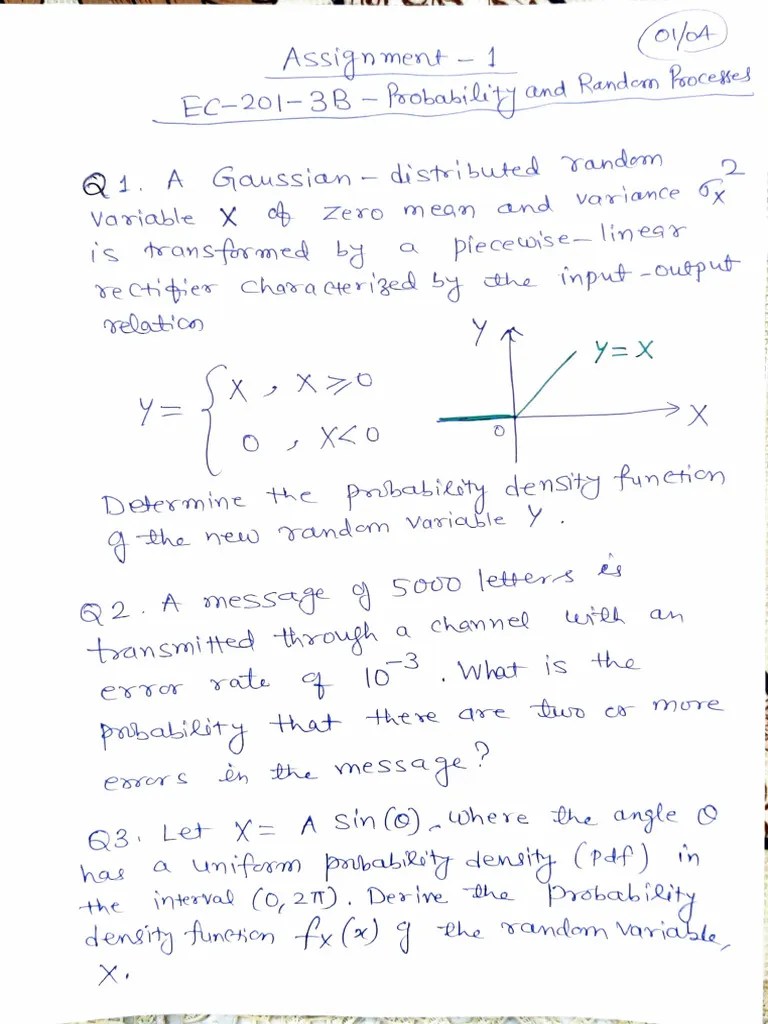 01/04
Assignment - 1
EC-201-3B - Probability and Random Processes
Q1. A Gaussian-distributed random
variable X of zero mean and variance σ_X^2
is transformed by a piecewise-linear
rectifier characterized by the input-output
relation
Y = { X , X ⩾ 0
0 , X < 0
Y
Y = X
X
0
Determine the probability density function
of the new random variable Y.
Q2. A message of 5000 letters is
transmitted through a channel with an
error rate of 10^-3. What is the
probability that there are two or more
errors in the message?
Q3. Let X = A sin(θ), where the angle θ
has a uniform probability density (pdf) in
the interval (0, 2π). Derive the probability
density function f_X(x) of the random variable,
X.